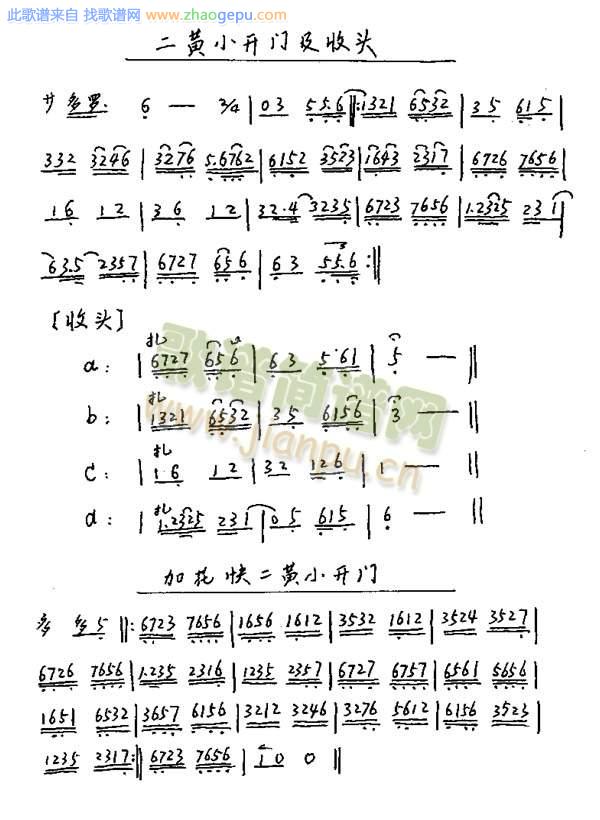 此歌谱来自 找歌谱网
www.zhaogepu.com
二黄小开门及收头
サ 多罗. 6 — 3/4 | 0 3 5 5.6 ‖: 1321 6532 | 3 5 6 1 5 |
332 3246 | 3276 5.6762 | 6152 3523 | 1643 2317 | 6726 7656 |
1 6 1 2 | 3 6 1 2 | 32.4 3235 | 6723 7656 | 1.2325 231 |
63.5 2357 | 6727 656 | 6 3 55.6 :‖
[收头]
a: | 扎 6727 656 | 6 3 5.61 | 5 — ‖
b: | 扎 1321 6532 | 35 6156 | 3 — ‖
c: | 扎 1.6 12 | 32 126 | 1 — ‖
d: | 扎 1.2325 231 | 05 615 | 6 — ‖
加花快二黄小开门
多 多 5 ‖: 6723 7656 | 1656 1612 | 3532 1612 | 3524 3527 |
6726 7656 | 1.235 2316 | 1235 2357 | 6727 6757 | 6561 5656 |
1651 6532 | 3657 6156 | 3212 3246 | 3276 5612 | 6156 3523 |
1235 2317 :‖ 6723 7656 | 1 0 0 ‖
歌谱简谱网
www.jianpu.cn